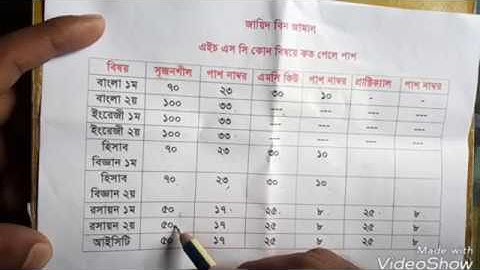 জায়িদ বিন জামান
এইচ এস সি কোন বিষয়ে কত পেলে পাশ
বিষয় সৃজনশীল পাশ নাম্বর এমসি কিউ পাশ নাম্বর প্রাক্টিক্যাল পাশ নাম্বর
বাংলা ১ম ৭০ ২৩ ৩০ ১০ - -
বাংলা ২য় ১০০ ৩৩ --- --- --- ---
ইংরেজী ১ম ১০০ ৩৩ --- --- --- ---
ইংরেজী ২য় ১০০ ৩৩ --- --- --- ---
হিসাব বিজ্ঞান ১ম ৭০ ২৩ ৩০ ১০
হিসাব বিজ্ঞান ২য় ৭০ ২৩ ৩০ ১০
রসায়ন ১ম ৫০ ১৭ ২৫ ৮ ২৫ ৮
রসায়ন ২য় ৫০ ১৭ ২৫ ৮ ২৫ ৮
আইসিটি ৫০ ১৭ ২৫ ৮ ২৫ ৮
Made with
VideoShow